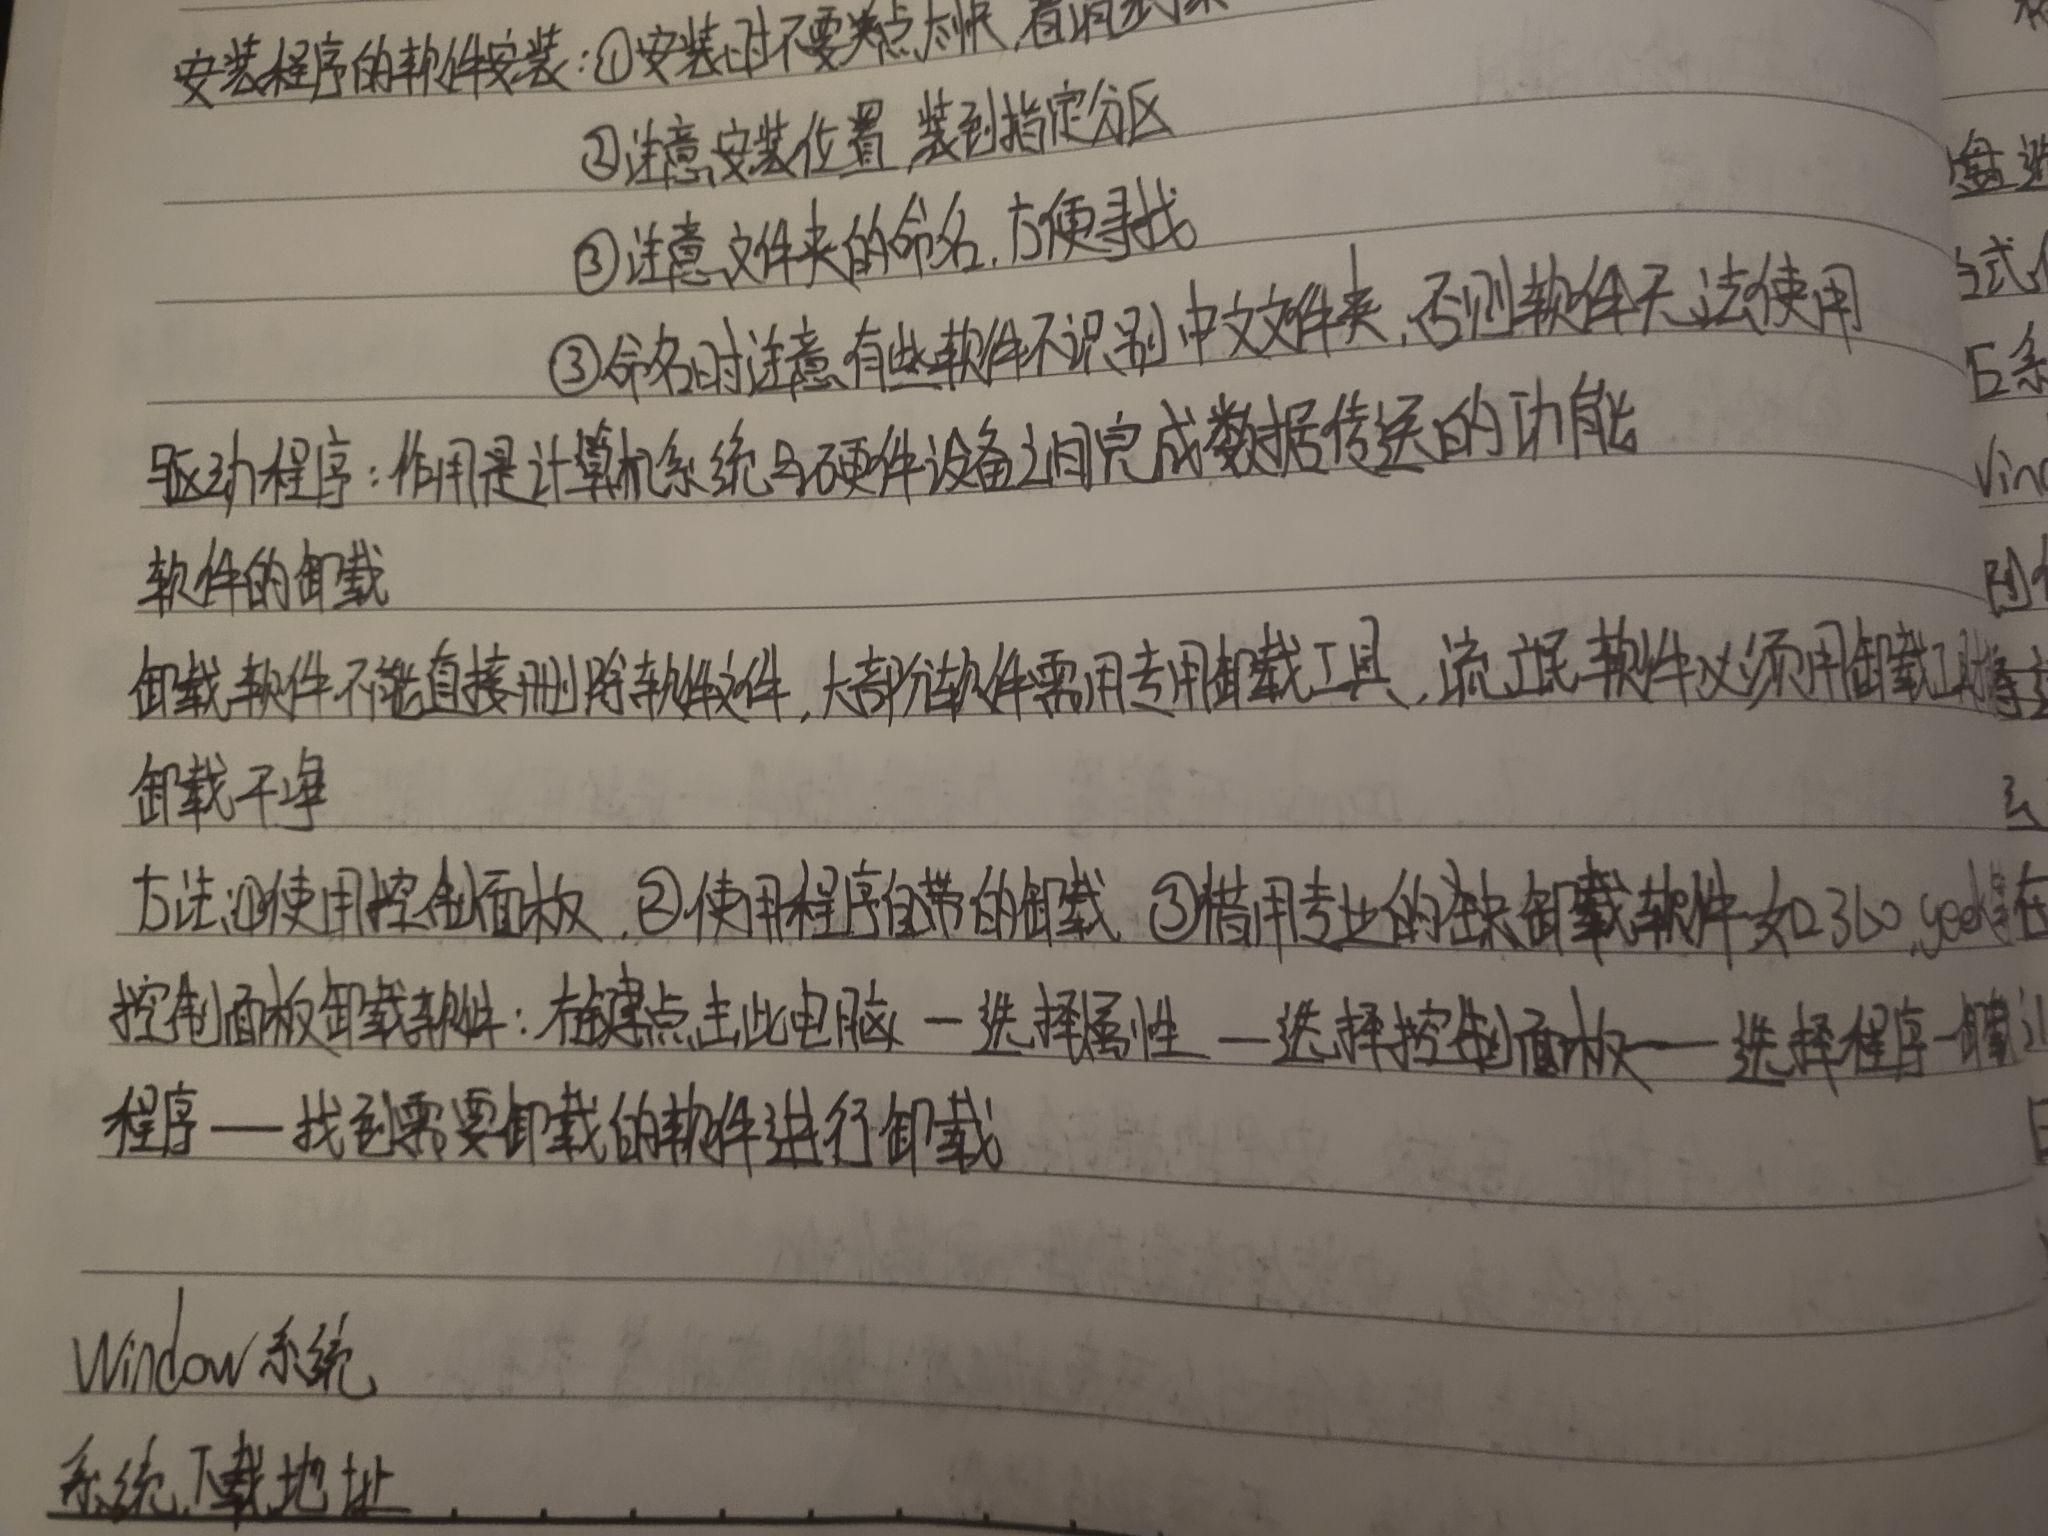 安装程序的软件安装：①安装时不要关点太快，看清
②注意安装位置，装到指定分区
③注意文件夹的命名，方便寻找
③命名时注意有些软件不识别中文文件夹，否则软件无法使用
驱动程序：作用是计算机系统与硬件设备之间完成数据传送的功能
软件的卸载
卸载软件不能直接删除软件文件，大部分软件需用专用卸载工具，流氓软件必须用卸载工具
卸载干净
方法：①使用控制面板，②使用程序自带的卸载，③借用专业的 卸载软件如360，geek等
控制面板卸载软件：右键点击此电脑—选择属性—选择控制面板—选择程序—卸载
程序—找到需要卸载的软件进行卸载
Window系统
系统下载地址